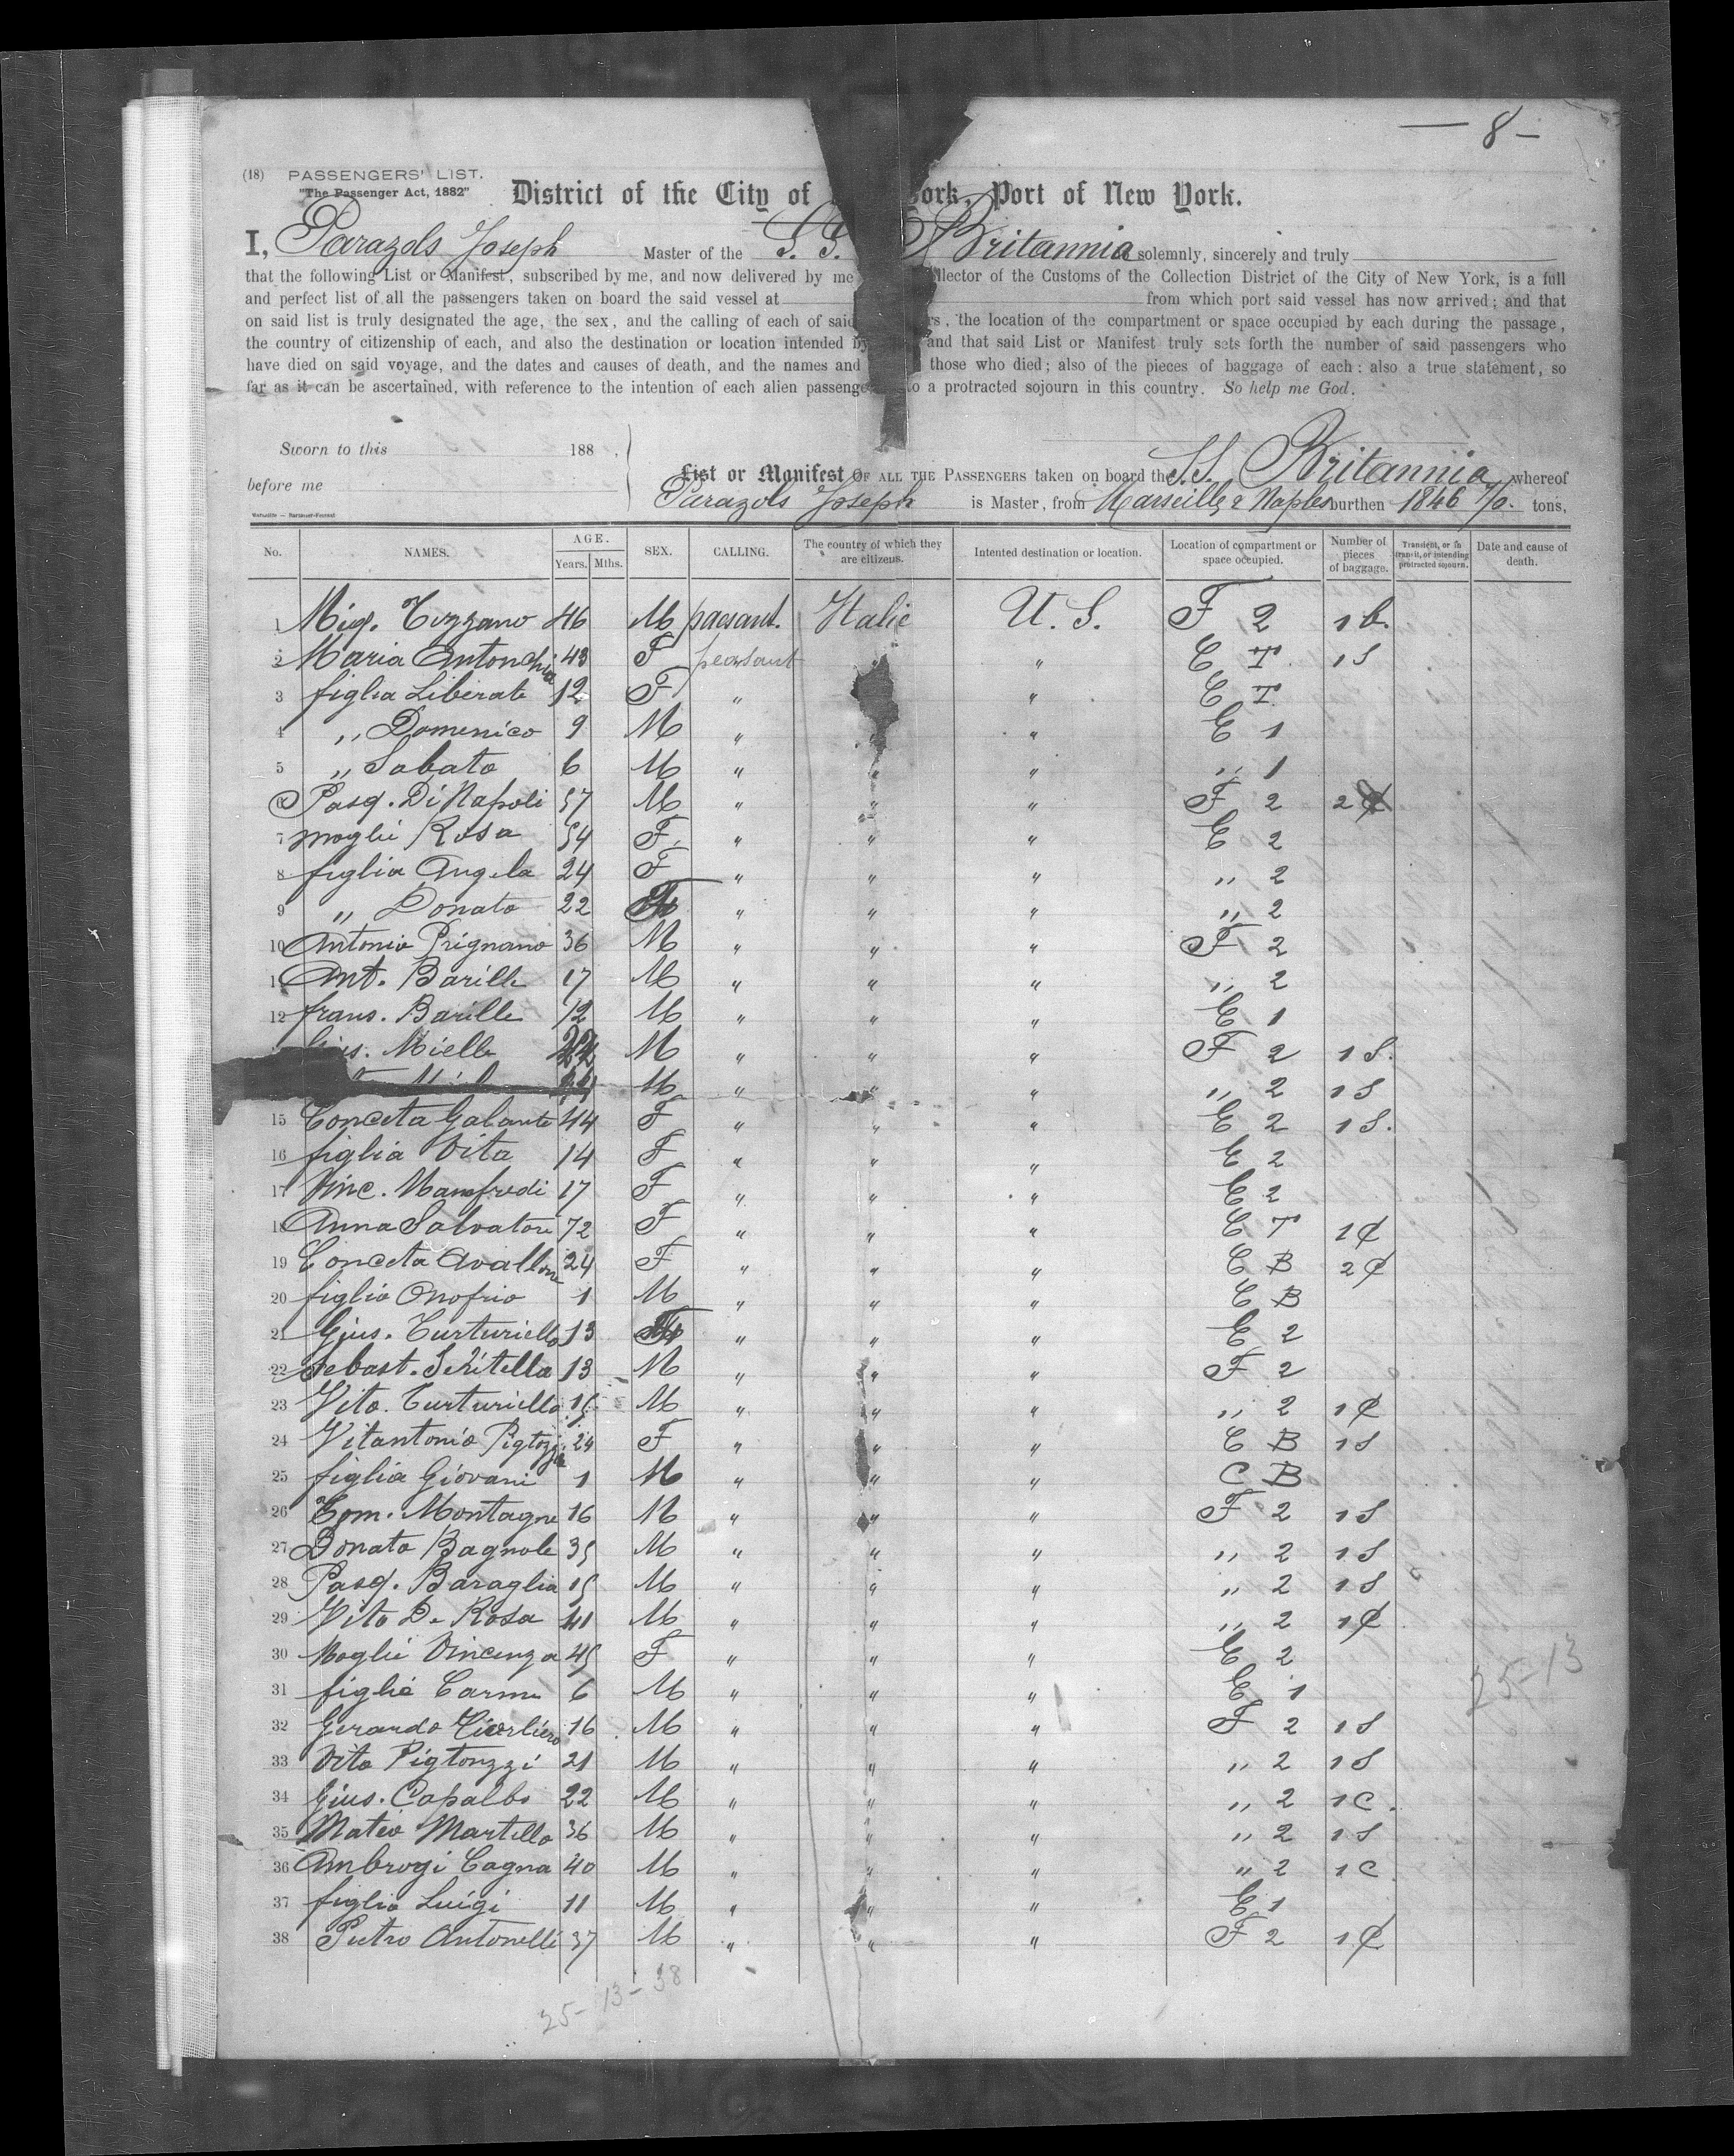 — 8 —
(18) PASSENGERS' LIST.
"The Passenger Act, 1882"
District of the City of ork, Port of New York.
I, Parazols Joseph Master of the S. S. Britannia solemnly, sincerely and truly
that the following List or Manifest, subscribed by me, and now delivered by me llector of the Customs of the Collection District of the City of New York, is a full
and perfect list of all the passengers taken on board the said vessel at from which port said vessel has now arrived; and that
on said list is truly designated the age, the sex, and the calling of each of said rs, the location of the compartment or space occupied by each during the passage,
the country of citizenship of each, and also the destination or location intended by and that said List or Manifest truly sets forth the number of said passengers who
have died on said voyage, and the dates and causes of death, and the names and those who died; also of the pieces of baggage of each: also a true statement, so
far as it can be ascertained, with reference to the intention of each alien passenge to a protracted sojourn in this country. So help me God.
Sworn to this 188 ,
before me
List or Manifest OF ALL THE PASSENGERS taken on board the S.S. Britannia whereof
Parazols Joseph is Master, from Marseille & Naples burthen 1846 tons,
No. NAMES. AGE. Years. Mths. SEX. CALLING. The country of which they are citizens. Intented destination or location. Location of compartment or space occupied. Number of pieces of baggage. Transient, or in transit, or intending protracted sojourn. Date and cause of death.
1 Mig. Tozzano 46 M paesant. Italie U. S. F 2 1 b.
2 Maria Antonchia 43 F peasant " E T 1 S
3 figlia Liberate 12 F " " E T
4 ,, Domenico 9 M " " " E 1
5 ,, Sabato 6 M " " " ,, 1
6 Pasq. Di Napoli 57 M " " " F 2 2 ¢
7 moglie Rosa 54 F. " " " E 2
8 figlia Angela 24 F " " " ,, 2
9 ,, Donato 22 " " " ,, 2
10 Antonio Prignano 36 M " " " F 2
11 Ant. Barille 17 M " " " ,, 2
12 frans. Barille 12 M " " " E 1
Gius. Mielle 22 M " " " F 2 1 S.
M " " " ,, 2 1 S
15 Conceta Galante 44 F " " " E 2 1 S.
16 figlia Vita 14 F " " " E 2
17 Vinc. Manfredi 17 F " " " E 2
18 Anna Salvatore 72 F " " " E T 1 ¢
19 Conceta Avallone 24 F " " " E B 2 ¢
20 figlio Onofrio 1 M " " " E B
21 Gius. Turturiello 13 " " " E 2
22 Sebast. Schitella 13 M " " " F 2
23 Vito. Turturiello 15 M " " " ,, 2 1 ¢
24 Vitantonia Pigtozzi 24 F " " " E B 1 S
25 figlia Giovani 1 M " " " C B
26 Tom. Montagne 16 M " " " F 2 1 S
27 Donato Bagnole 35 M " " " ,, 2 1 S
28 Pasq. Baraglia 15 M " " " ,, 2 1 S
29 Vito De Rosa 41 M " " " ,, 2 1 ¢
30 Moglie Vincenza 45 F " " " E 2
31 figlie Carm 6 M " " " E 1
32 Gerardo 16 M " " " F 2 1 S
33 Vito Pigtonzzi 21 M " " " ,, 2 1 S
34 Gius. Capalbo 22 M " " " ,, 2 1 C.
35 Mateo Martello 36 M " " " ,, 2 1 S
36 Ambrogi Cagna 40 M " " " ,, 2 1 C
37 figlio Luigi 11 M " " " E 1
38 Pietro Antonelli 37 M " " " F 2 1 ¢
25-13
25-13-38